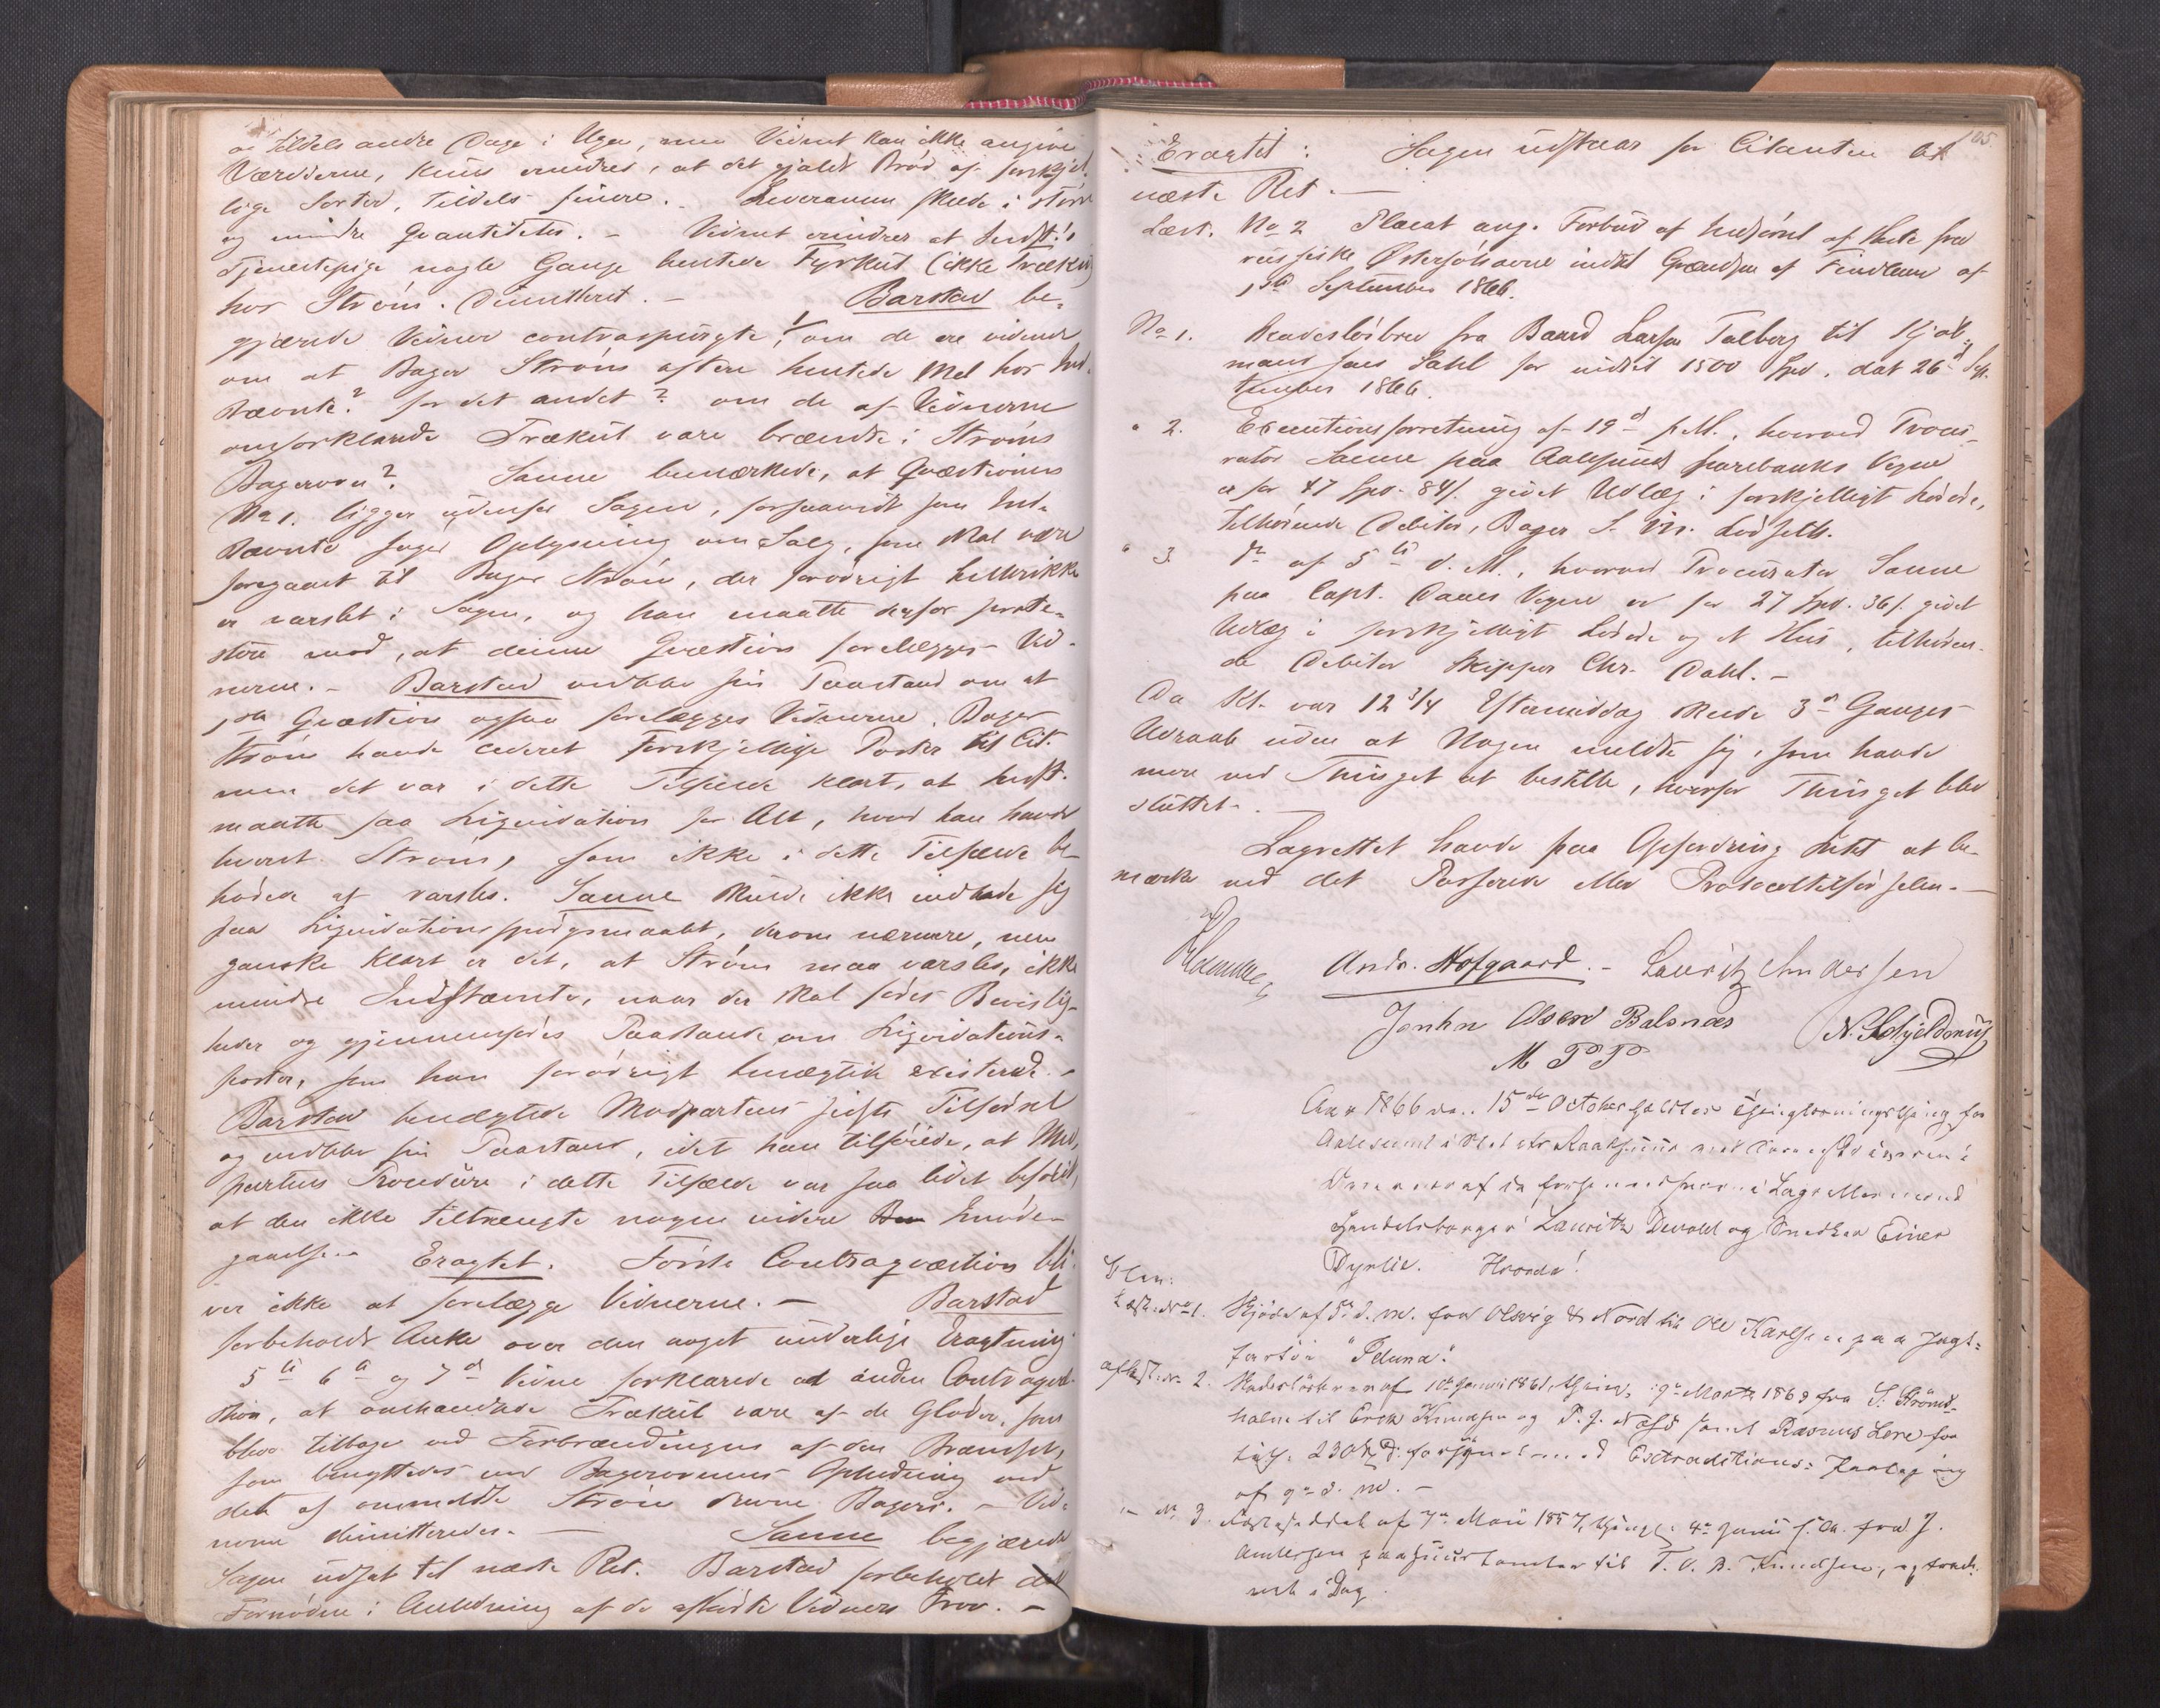 og tildels andre Dage i Ugen, men Vidnet kan ikke angive
Værdierne, kuns erindres, at det gjaldt Brød af forskjel-
lige Sorter, tildels finere. Leverancen skede i større
og mindre Qvantiteter. – Vidnet erindrer at Indst:s
Tjenestepige nogle Gange hentede Fyrkul (ikke Trækul)
hos Strøm. Dimitteret. – Barstad be-
gjærede Vidner contraspurgte, 1/ om de ere vidende
om at Bager Strøm oftere hentede Mel hos Ind-
stævnte? for det andet? om de af Vidnerne
omforklarede Trækul vare brændte i Strøms
Bagerovn? Sanne bemærkede, at Qvæstionen
No 1. ligger udenfor Sagen, forsaavidt som Ind-
stævnte søger Oplysning om Salg, som skal være
foregaaet til Bager Strøm, der forøvrigt heller ikke
er varslet i Sagen, og han maatte derfor prote-
stere mod, at denne Qvæstion forelægges Vid-
nerne. – Barstad vedblev sin Paastand om at
1ste Qvæstion ogsaa forelægges Vidnerne. Bager
Strøm havde cederet forskjellige Poster til Cit.
men det var i dette Tilfælde klart, at Indst.
maatte faa Liqvidation for Alt, hvad han havde
leveret Strøm, som ikke i dette Tilfælde be-
høved at varsles. Sanne skulde ikke indlade sig
paa Liqvidationsspørgsmaalet, derom nærmere, men
ganske klart er det, at Strøm maa varsles, ikke
mindre Indstævnte, naar der skal føres Bevislig-
heder og gjennemføres Paastand om Liqvidations-
poster, som han forøvrigt benægtede existerede. –
Barstad benægtede Modpartens sidste Tilførsel
og vedblev sin Paastand, idet han tilføiede, at Mod-
partens Procedure i dette Tilfælde var saa lidet beføiet,
at den ikke tiltrængte nogen videre Imøde-
gaaelse. – Eragtet. Første Contraqvæstion bli-
ver ikke at forelægge Vidnerne. – Barstad
forbeholdt Anke over den noget underlige Eragtning
5te 6te og 7de Vidne forklarede ad anden Contraqvæ-
stion, at omhandlede Trækul vare af de Gløder, som
blev tilbage ved Forbrændingen af den Brændsel,
som benyttedes ved Bagerovnens Ophedning ved
det af ommeldte Strøm drevne Bageri. – Vid-
nerne dimitteredes. – Sanne begjærede
Sagen udsat til næste Ret. Barstad forbeholdt
Fornødne i Anledning af de afhørte Vidners Prov. –
105
Eragtet: Sagen udstaar for Citanten til
næste Ret. –
Læst. No 2 Placat ang. Forbud af Indførsel af Huder fra
russiske Østersøhavne indtil Grændsen af Finland af
1ste September 1866.
No 1. Skadesløsbrev fra Baard Larsen Talberg til Kjøb-
mand Jens Dahl for indtil 1500 Spd. dat 26de Sep-
tember 1866.
" 2. Executionsforretning af 19de f. M., hvorved Procu-
rator Sanne paa Aalesunds Sparebanks Vegne
er for 47 Spd. 84 s. givet Udlæg i forskjelligt Løsøre,
tilhørende Debitor, Bager
" 3. do af 5te d. M., hvorved Procurator Sanne
paa Capt. Daaes Vegne er for 27 Spd. 36 s. givet
Udlæg i forskjelligt Løsøre og et Hus, tilhøren-
de Debitor Skipper Chr. Dahl. –
Da Kl. var 12 3/4 Eftermiddag skede 3de Ganges
Udraab uden at Nogen meldte sig, som havde
mere ved Thinget at bestille, hvorfor Thinget blev
sluttet. –
Lagrettet havde paa Opfordring Intet at be-
mærke ved det Passerede eller Protocoltilførselen. –
Andr. Hofgaard. – Lauritz Andersen
John Olsen Balsnæs N. Schjeldsnæs
M P P
Aar 1866 den 15de October holdtes Thinglæsningsthing for
Aalesund i Stedets Raadhuus med
Overværelse af de forhenværende Lagrettesmænd
Handelsborger Lauritz Devold og Snedker Einer
Dyrlie. Hvorda!
Læst No 1. Skjøde af 5te d. M. fra Olsvig & Nord til Ole Karlsen paa Jagt-
fartøi "Iduna".
aflæst. No 2. Skadesløsbrev af 10de Januar 1861, thingl. 9de Marts 1869 fra S. Strøms-
holm til Erik Knudsen og P. J. Næss samt Rasmus Lere for
230 Spd. forsynet med Extraditions-Paategning
af 9de d. M. –
" No 3. Fæstesedel af 7de Mai 1857, thingl. 4de Juni s. A. fra J.
Andersen paa Huustomten til T. O. B. Knudsen,
i Dag.